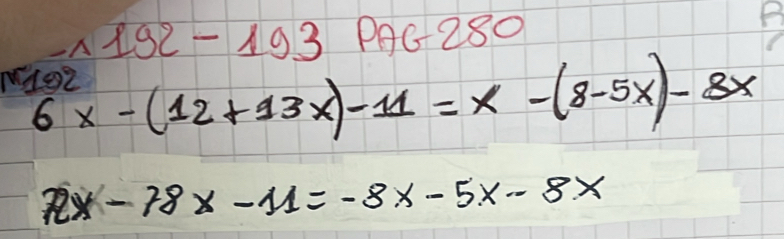 192 - 193 PAG 280
n°192
6x - (12 + 13x) - 11 = x - (8 - 5x) - 8x
72x - 78x - 11 = -8x - 5x - 8x